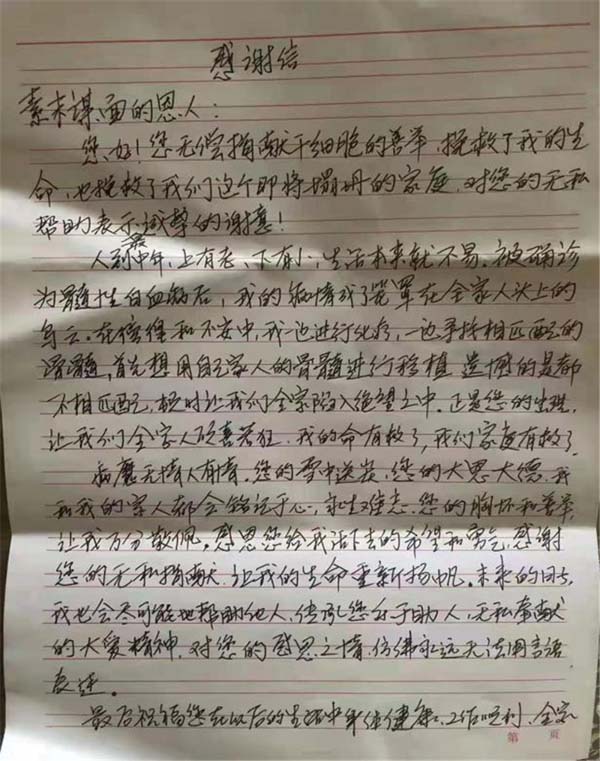 感谢信
素未谋面的恩人：
您好！您无偿捐献干细胞的善举，挽救了我的生
命，也挽救了我们这个即将塌册的家庭，对您的无私
帮助表示诚挚的谢意！
人到中年，上有老、下有小，生活本来就不易。被确诊
为髓性白血病后，我的病情成了笼罩在全家人头上的
乌云。在彷徨和不安中，我一边进行化疗，一边寻找相匹配的
骨髓，首先想用自己家人的骨髓进行移植，遗憾的是都
不相匹配，顿时让我们全家陷入绝望之中。正是您的出现，
让我们全家人欣喜若狂，我的命有救了，我们家庭有救了。
病魔无情人有情。您的雪中送炭，您的大恩大德，我
和我的家人都会铭记于心，永生难忘。您的胸怀和善举，
让我万分敬佩。感恩您给我活下去的希望和勇气，感谢
您的无私捐献，让我的生命重新扬帆。未来的日子，
我也会尽可能地帮助他人，传承您乐于助人、无私奉献
的大爱精神。对您的感恩之情，仿佛永远无法用言语
表达。
最后祝福您在以后的生活中身体健康、工作顺利、全家
第 页